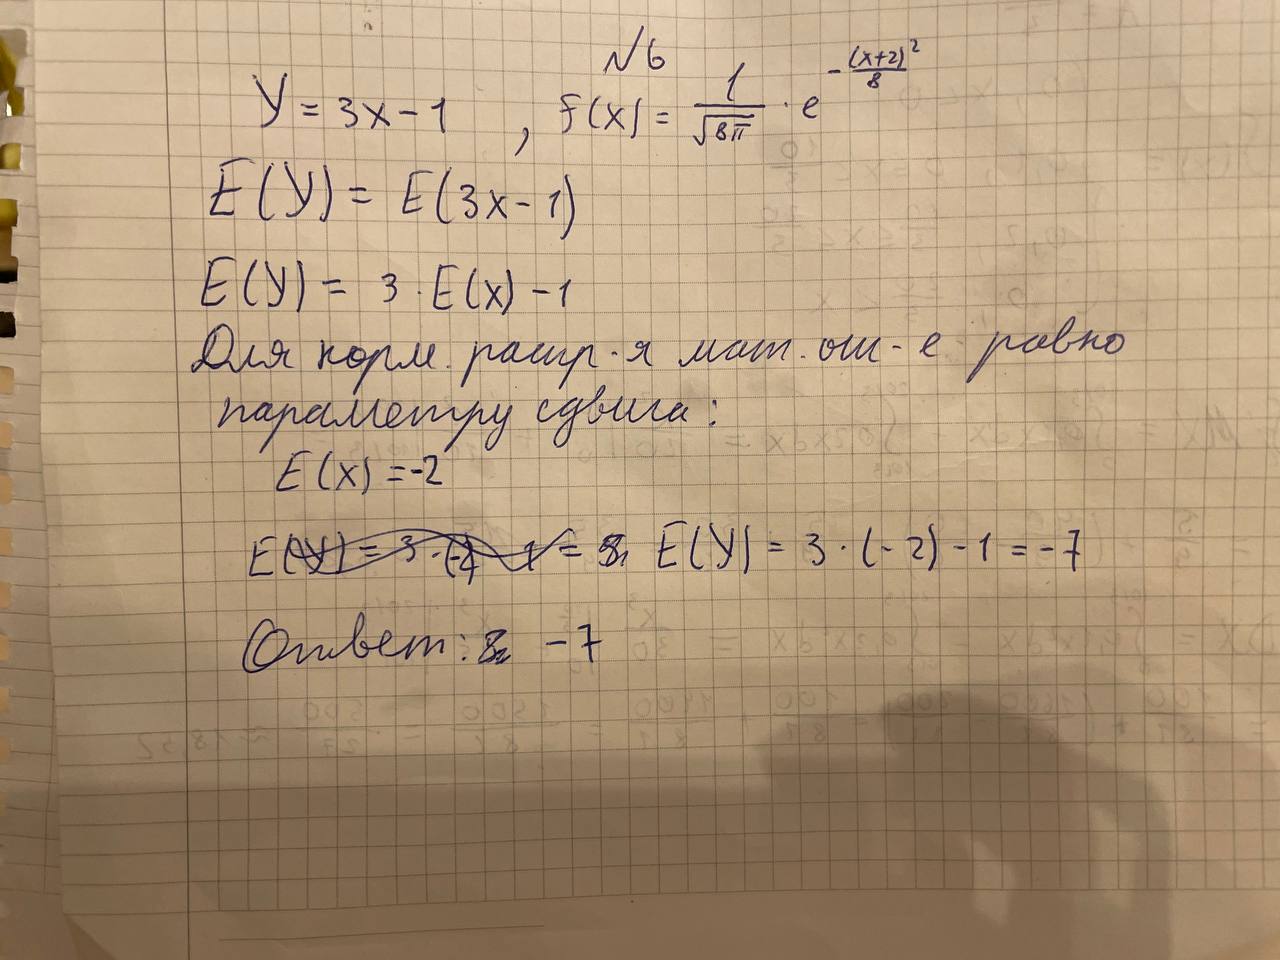 №6
У = 3х - 1 , f(x) = 1/√8π · e^-(x+2)²/8
E(У) = E(3х - 1)
E(У) = 3 · E(x) - 1
Для норм. распр-я мат. ож-е равно
параметру сдвига:
E(x) = -2
E(У) = 3 · (-2) - 1 = -7
Ответ: -7